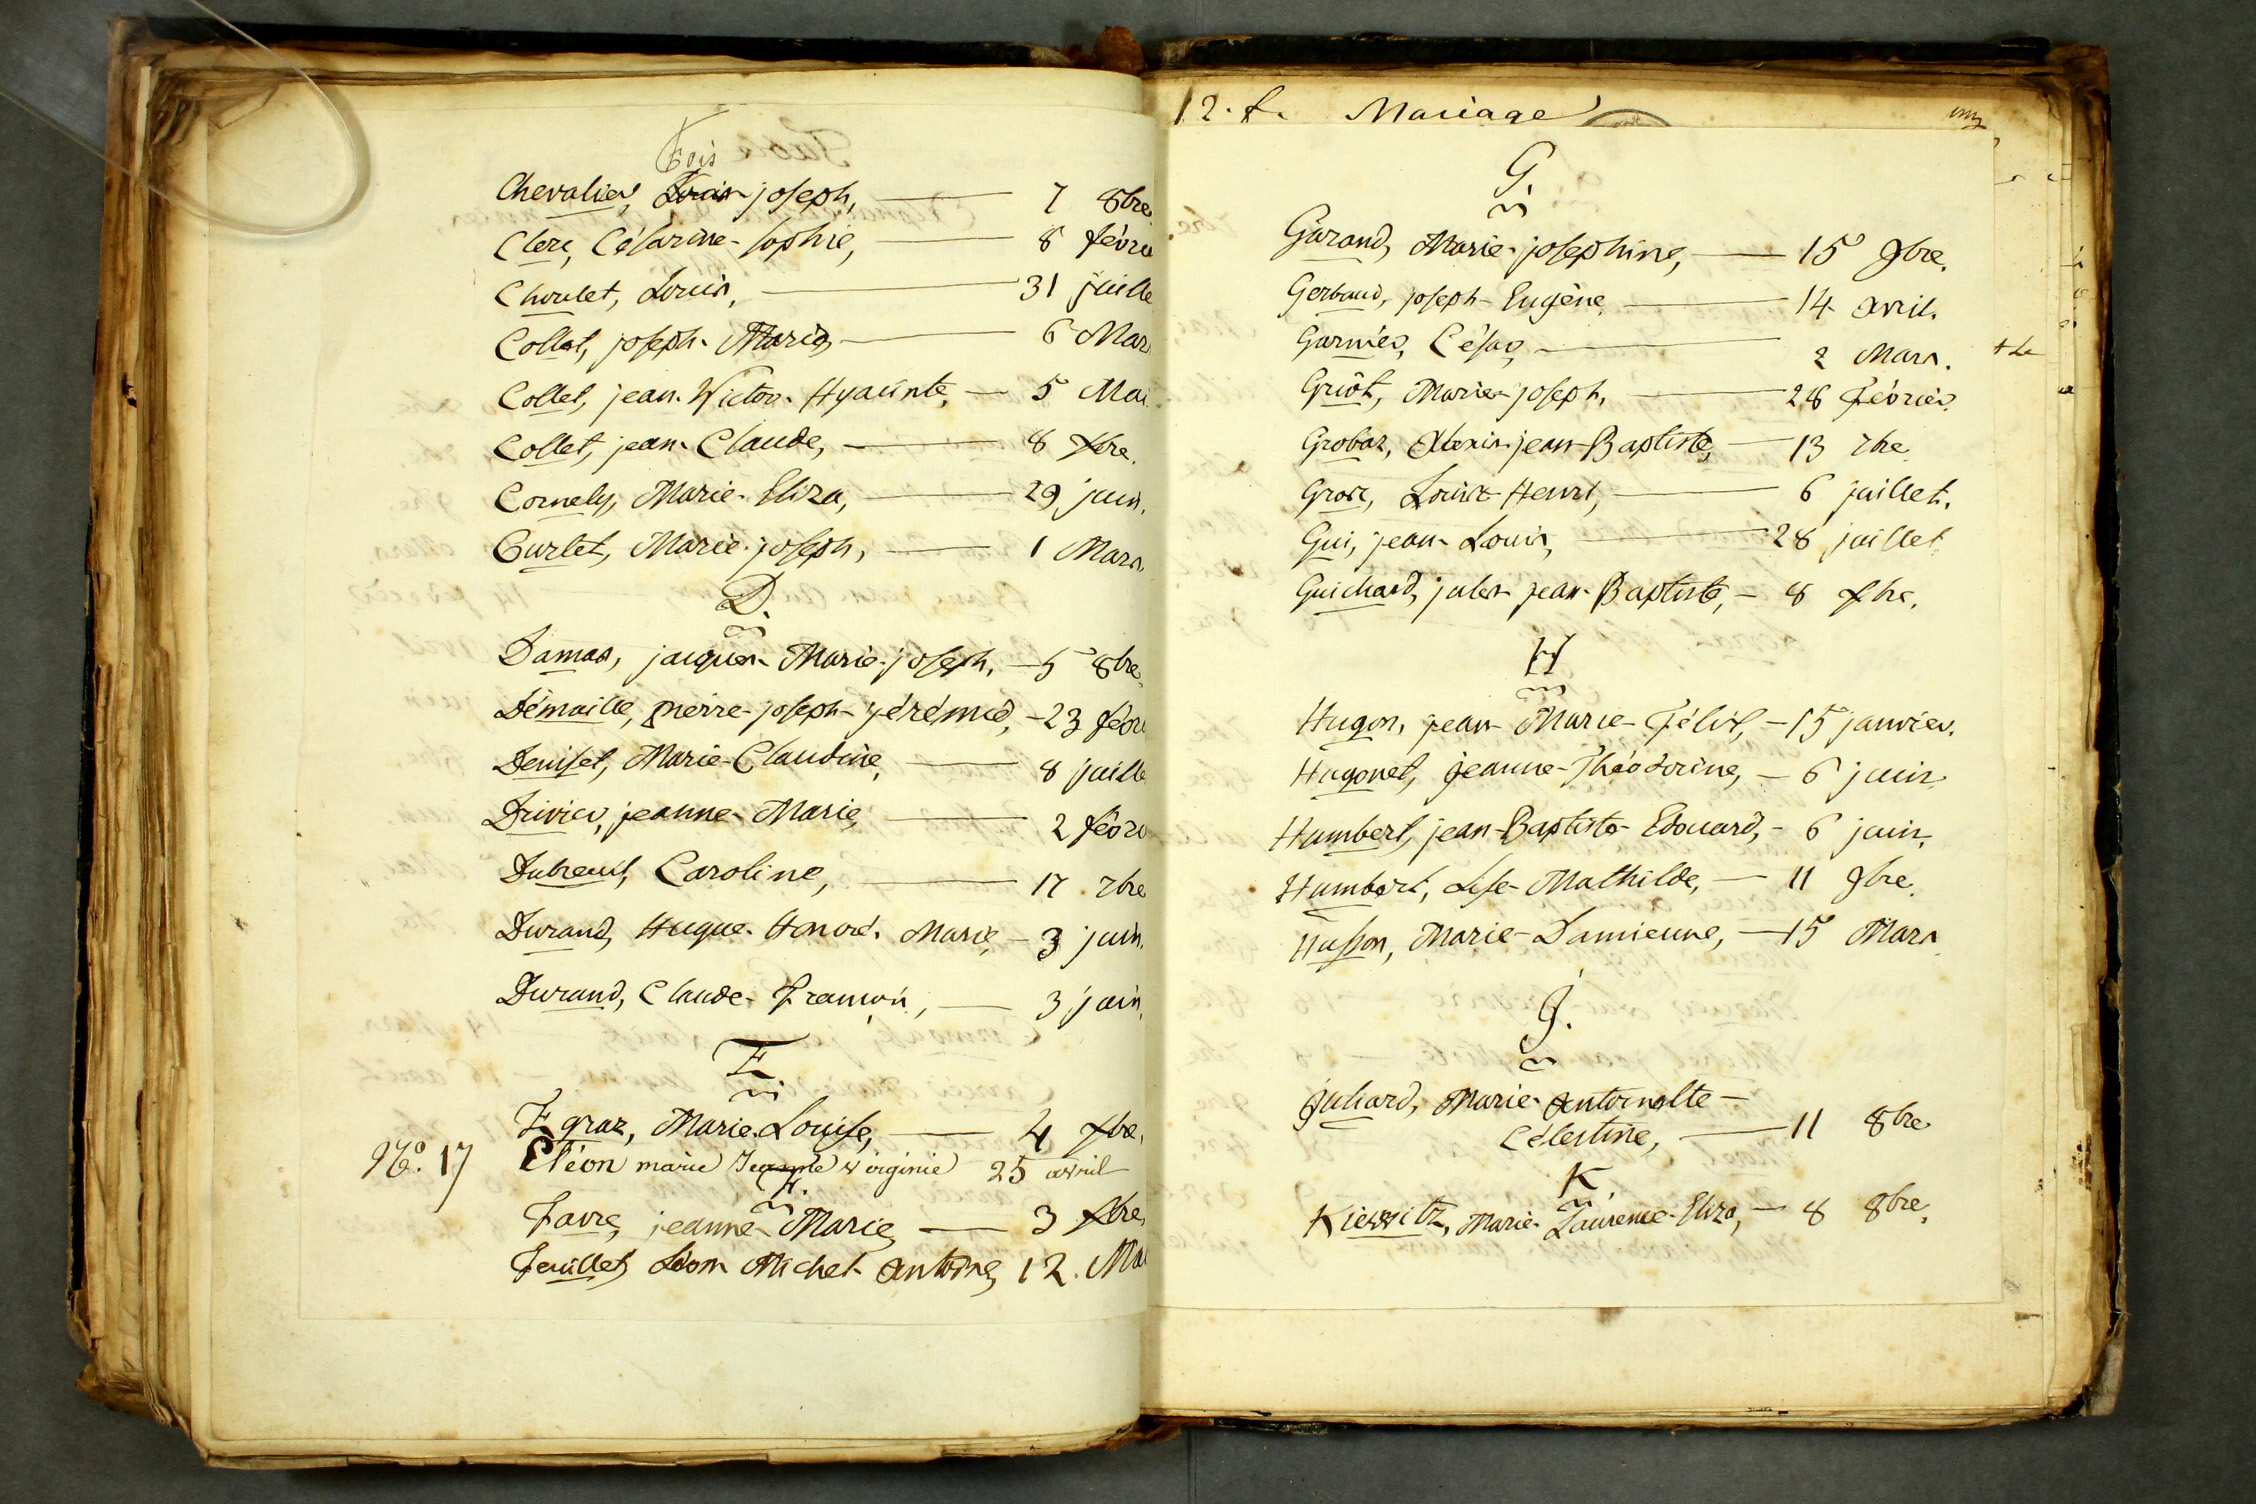 Chevalier, Louis joseph, 7 8bre
Clerc, Césarine-sophie, 8 févrie
Choulet, Louis, 31 juille
Collet, joseph-Marie, 6 Mars
Collet, jean-Victor-Hyacinte, 5 Mai
Collet, jean-Claude, 8 xbre.
Cornely, Marie-Eliza, 29 juin.
Curlet, Marie-joseph, 1 Mars.
D.
Damas, jacques-Marie-joseph, 5 8bre,
Démaille, pierre-joseph-jérémie, 23 févri
Deniset, Marie-Claudine, 8 juille
Drivier, jeanne-Marie, 2 févri
Dubreuil, Caroline, 17 7bre
Durand, Hugue-Honoré-Marie, 3 juin.
Durand, Claude-François, 3 juin,
E
Egraz, Marie-Louise, 4 xbre,
No. 17 Eléon marie Jeanne virginie 25 avril
F.
Favre, jeanne-Marie, 3 xbre,
Feuillet, Léon-Michel-antoine, 12. Ma
12. f. Mariage
G.
Garand, Marie-josephine, 15 9bre.
Gerbaud, joseph-Eugène, 14 avril.
Garnier, César, 2 Mars.
Griôt, Marie-joseph, 28 Février.
Grobaz, Alexis-jean-Baptiste, 13 7bre
Gros, Louis-Henri, 6 juillet.
Gui, jean-Louis, 28 juillet
Guichard, jules-jean-Baptiste, 8 xbre.
H
Hugon, jean-Marie-Félix, 15 janvier.
Hugonet, jeanne-Théodorine, 6 juin
Humbert, jean-Baptiste-Edouard, 6 juin,
Humbert, Lise-Mathilde, 11 9bre.
Husson, Marie-Damienne, 15 Mars
J.
Juhard, Marie-antoinette-
Célestine, 11 8bre
K
Kiewitz, Marie-Laurence-Eliza, 8 8bre,